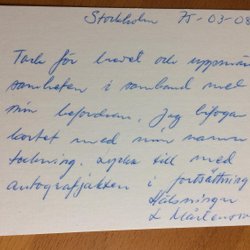 Stockholm 75-03-08
Tack för brevet och uppmärk
samheten i samband med
min befordran. Jag bifogar
kortet med min namn
teckning. Lycka till med
autografjakten i fortsättning
Hälsningar
L Mårtenson